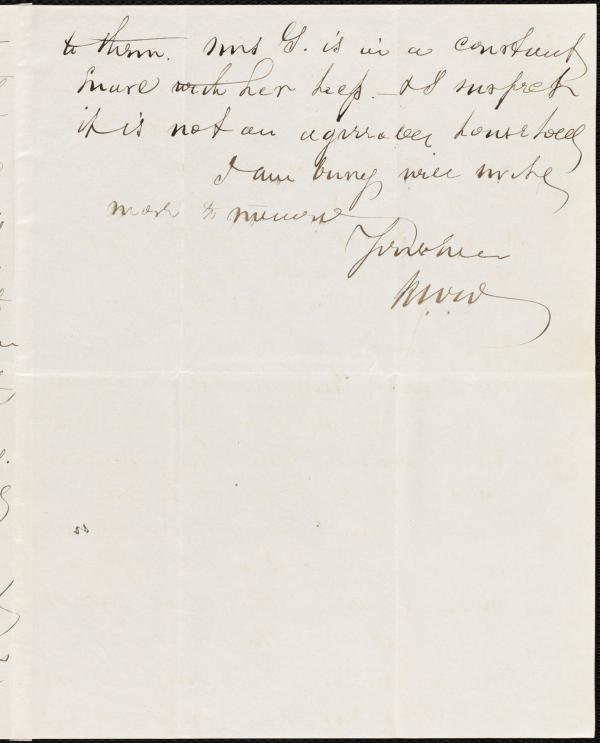 to them. Mrs G. is in a constant
snarl with her help. & I suspect
it is not an agreeable household
I am busy will write
more to morrow
Yours truly